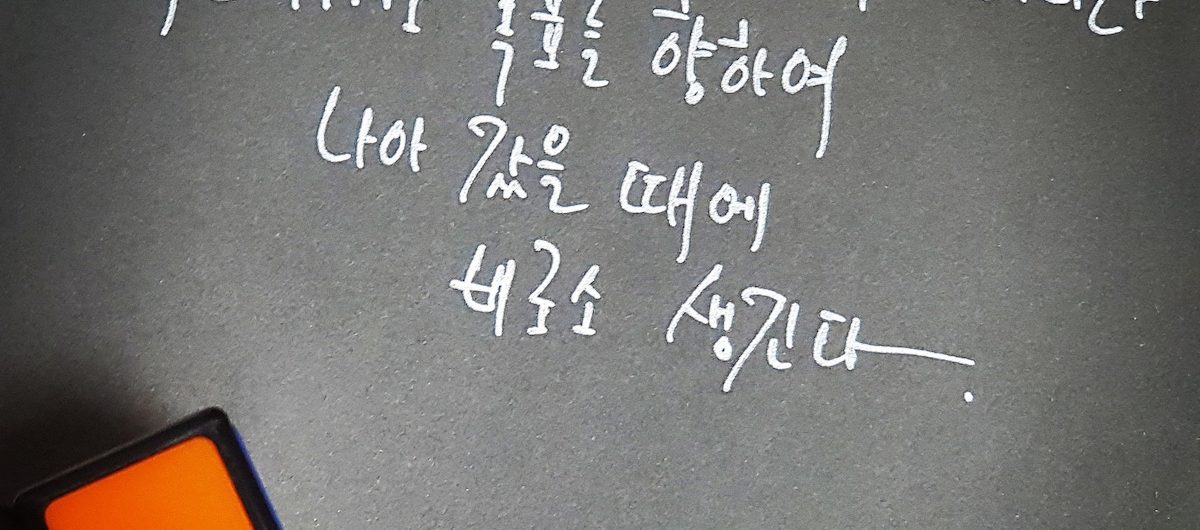 목표를 향하여
나아 갔을 때에
비로소 생긴다.